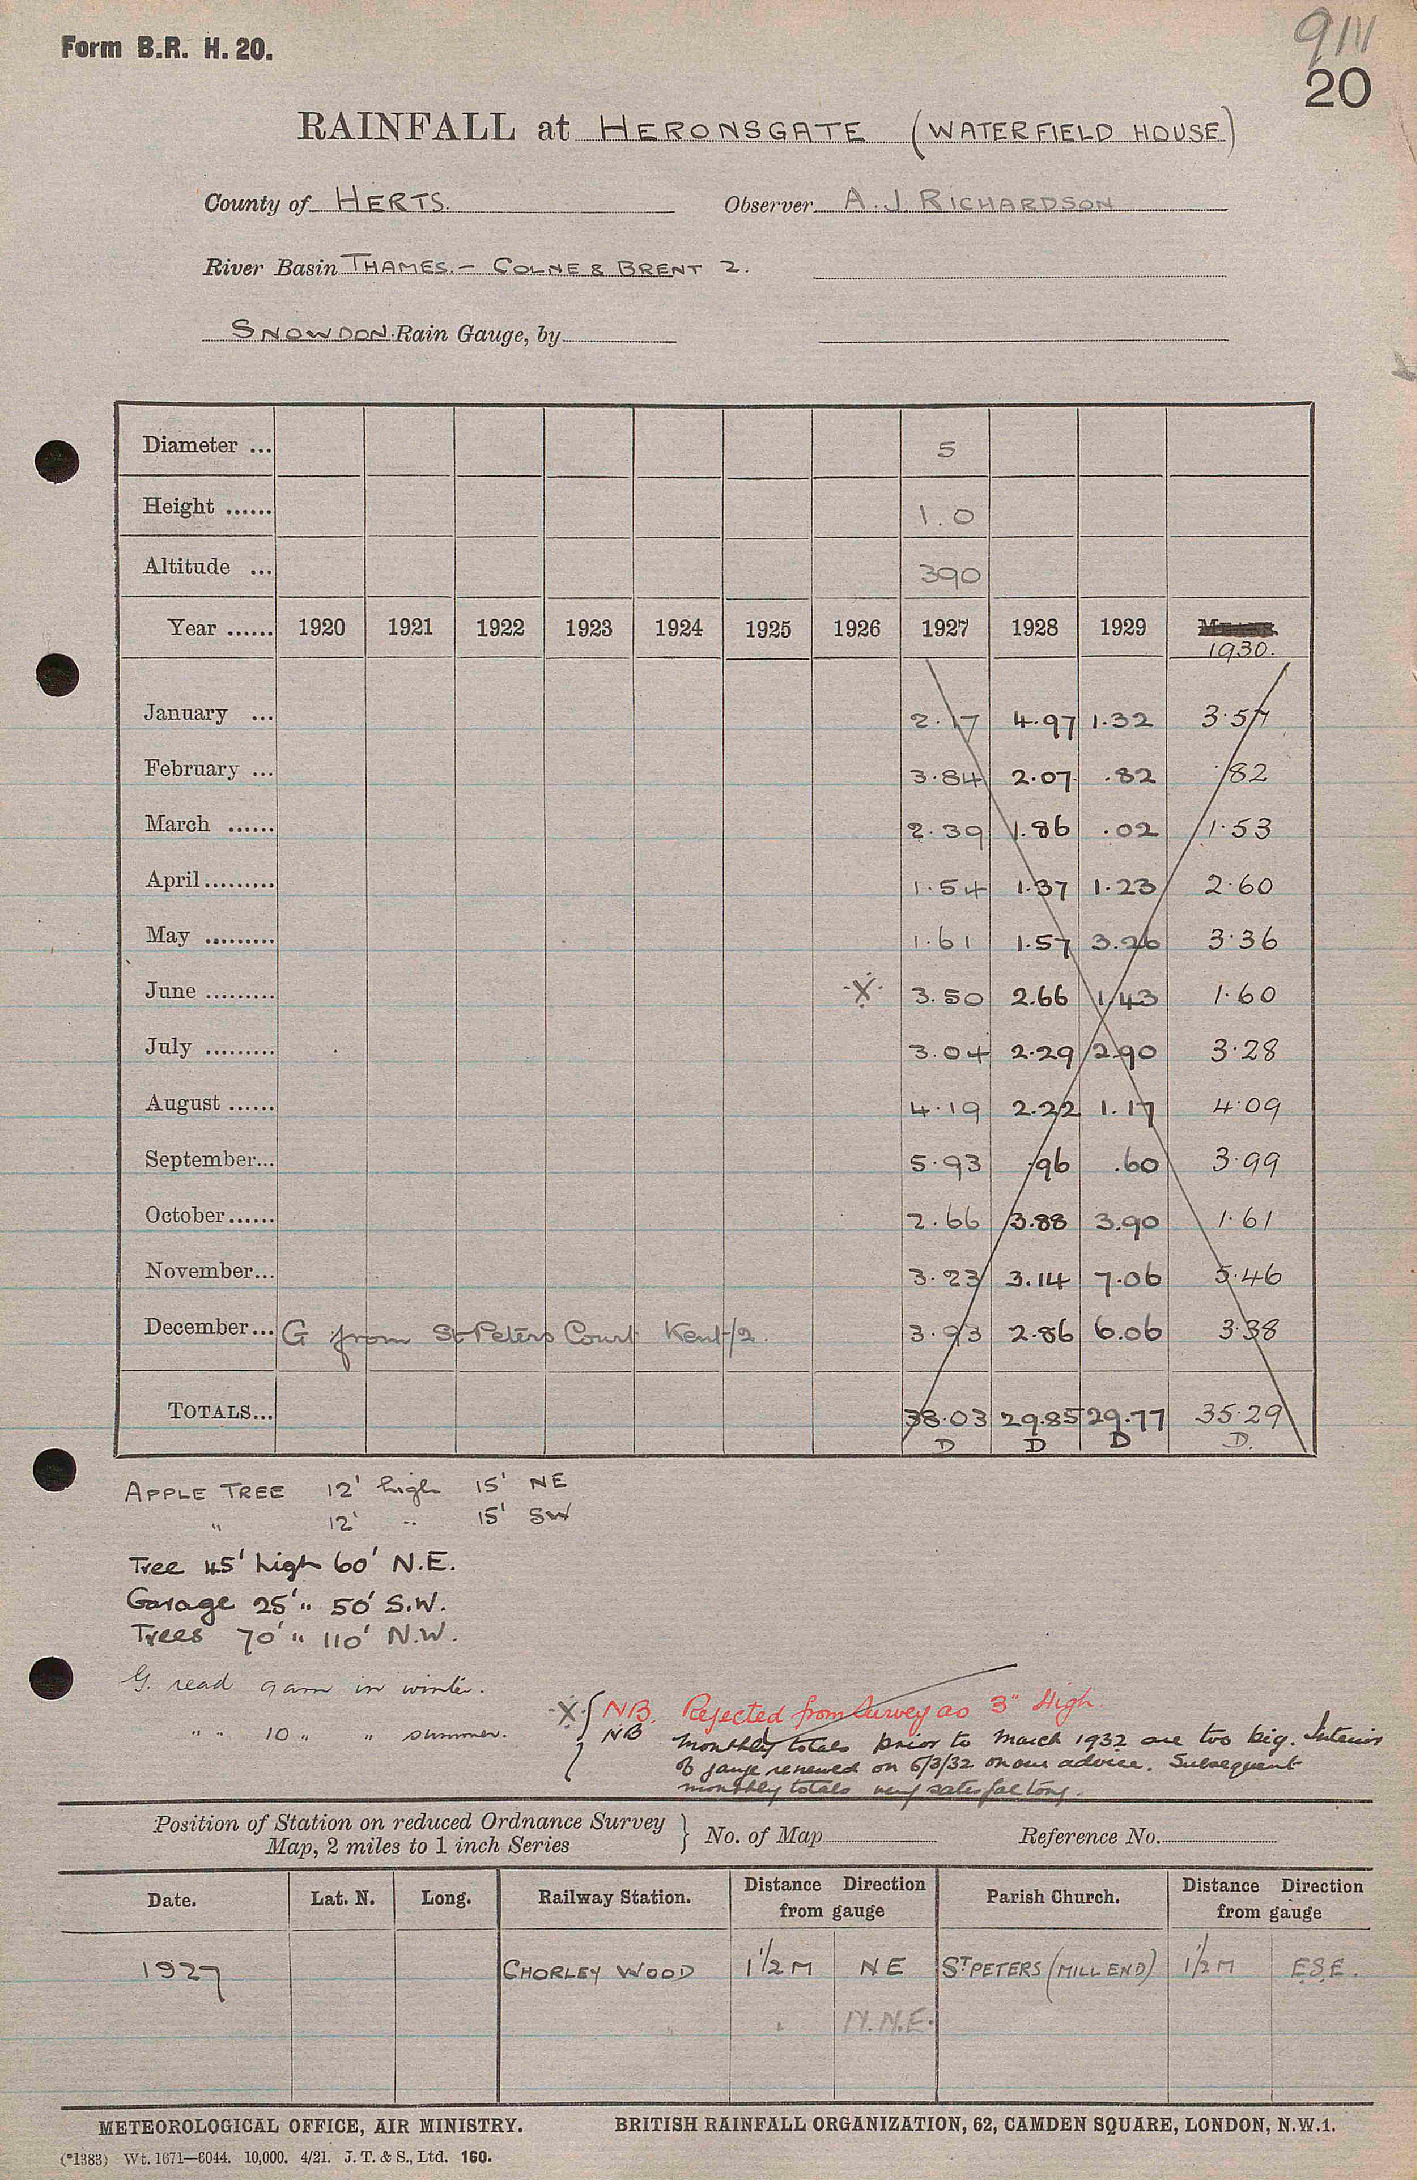 Form B.R. H. 20.
911
20
RAINFALL at HERONSGATE (WATERFIELD HOUSE)
County of HERTS. Observer A. J. RICHARDSON
River Basin THAMES. – COLNE & BRENT 2.
SNOWDON Rain Gauge, by
Diameter ... 5
Height ...... 1.0
Altitude ... 390
Year ...... 1920 1921 1922 1923 1924 1925 1926 1927 1928 1929 1930.
January ... 2.17 4.97 1.32 3.57
February ... 3.84 2.07 .82 .82
March ...... 2.39 1.86 .02 1.53
April ......... 1.54 1.37 1.23 2.60
May ......... 1.61 1.57 3.26 3.36
June ......... X 3.50 2.66 1.43 1.60
July ......... 3.04 2.29 2.90 3.28
August ...... 4.19 2.22 1.17 4.09
September... 5.93 .96 .60 3.99
October ...... 2.66 3.88 3.90 1.61
November... 3.23 3.14 7.06 5.46
December... G from St Peters Court Kent/2. 3.93 2.86 6.06 3.38
TOTALS... 38.03 29.85 29.77 35.29
D D D D.
APPLE TREE 12' high 15' NE
" 12' " 15' SW
Tree 45' high 60' N.E.
Garage 25' " 50' S.W.
Trees 70' " 110' N.W.
G. read 9 am in winter.
" " 10 " " summer.
X NB. Rejected from Survey as 3" High.
NB Monthly totals prior to March 1932 are too big. Interior
of gauge renewed on 6/3/32 on our advice. Subsequent
monthly totals very satisfactory.
Position of Station on reduced Ordnance Survey
Map, 2 miles to 1 inch Series } No. of Map Reference No.
Date. Lat. N. Long. Railway Station. Distance Direction from gauge Parish Church. Distance Direction from gauge
1927 CHORLEY WOOD 1 1/2 M NE ST PETERS (MILL END) 1 1/2 M E.S.E.
" " N.N.E.
METEOROLOGICAL OFFICE, AIR MINISTRY. BRITISH RAINFALL ORGANIZATION, 62, CAMDEN SQUARE, LONDON, N.W.1.
(*1383) Wt. 1671—6044. 10,000. 4/21. J. T. & S., Ltd. 160.